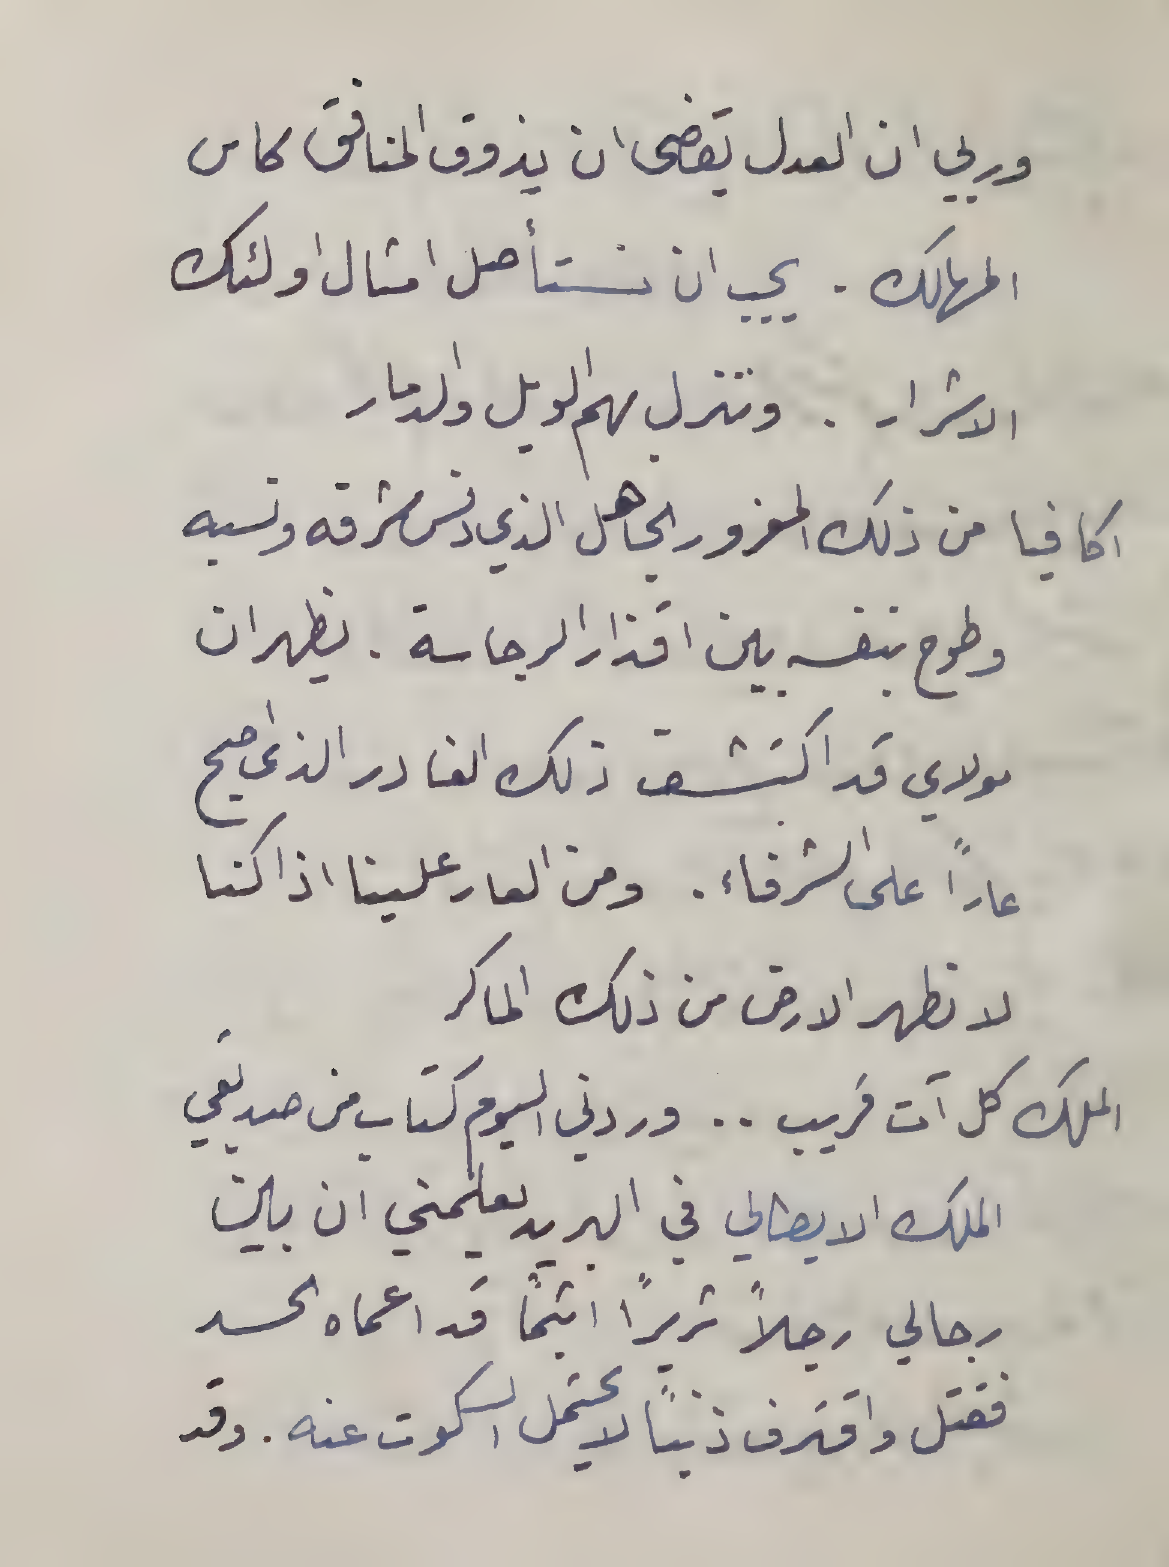 وربي ان العدل يقضى ان يذوق المنافق كاس
المهالك . يجب ان نستأصل امثال اولئك
الاشرار . وننزل بهم الويل والدمار
اكافيا من ذلك المغرور الجاهل الذي دنس شرفه ونسبه
وطوح بنفسه بين اقذار الرجاسة . يظهر ان
مولاي قد اكتشف ذلك الغادر الذي اصبح
عاراً على الشرفاء . ومن العار علينا اذا كنا
لا نطهر الارض من ذلك الماكر
الملك كل آت قريب .. وردني اليوم كتاب من صديقي
الملك الايطالي في البريد يعلمني ان بين
رجالي رجلاً شريرًا اثيمًا قد اعماه الحسد
فقتل واقترف ذنبًا لا يحتمل السكوت عنه . وقد